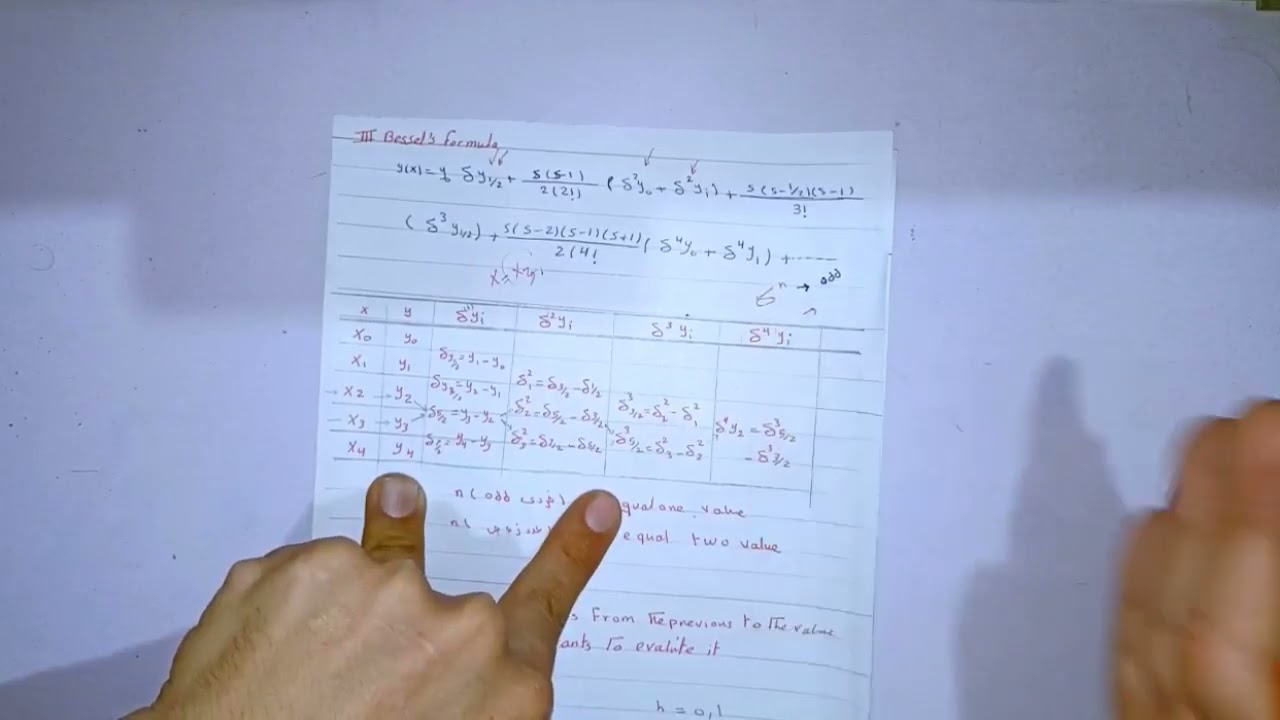 III Bessel's Formula
y(x) = y₀ δy₁/₂ + s(s-1)/2(2!) (δ²y₀ + δ²y₁) + s(s-1/2)(s-1)/3!
(δ³y₁/₂) + s(s-2)(s-1)(s+1)/2(4! (δ⁴y₀ + δ⁴y₁) + ......
n → odd
x y δ'yᵢ δ²yᵢ δ³yᵢ δ⁴yᵢ
x₀ y₀
x₁ y₁ δy₁/₂ = y₁ - y₀
x₂ y₂ δy₃/₂ = y₂ - y₁ δ²₁ = δ₃/₂ - δ₁/₂
x₃ y₃ δ₅/₂ = y₃ - y₂ δ²₂ = δ₅/₂ - δ₃/₂ δ³₃/₂ = δ²₂ - δ²₁
x₄ y₄ δ₇/₂ = y₄ - y₃ δ²₃ = δ₇/₂ - δ₅/₂ δ³₅/₂ = δ²₃ - δ²₂ δ⁴y₂ = δ³₅/₂ - δ³₃/₂
n (odd فردى) qual one value
n( equal two value
s From The previons to The value
ants To evalute it
h = 0,1